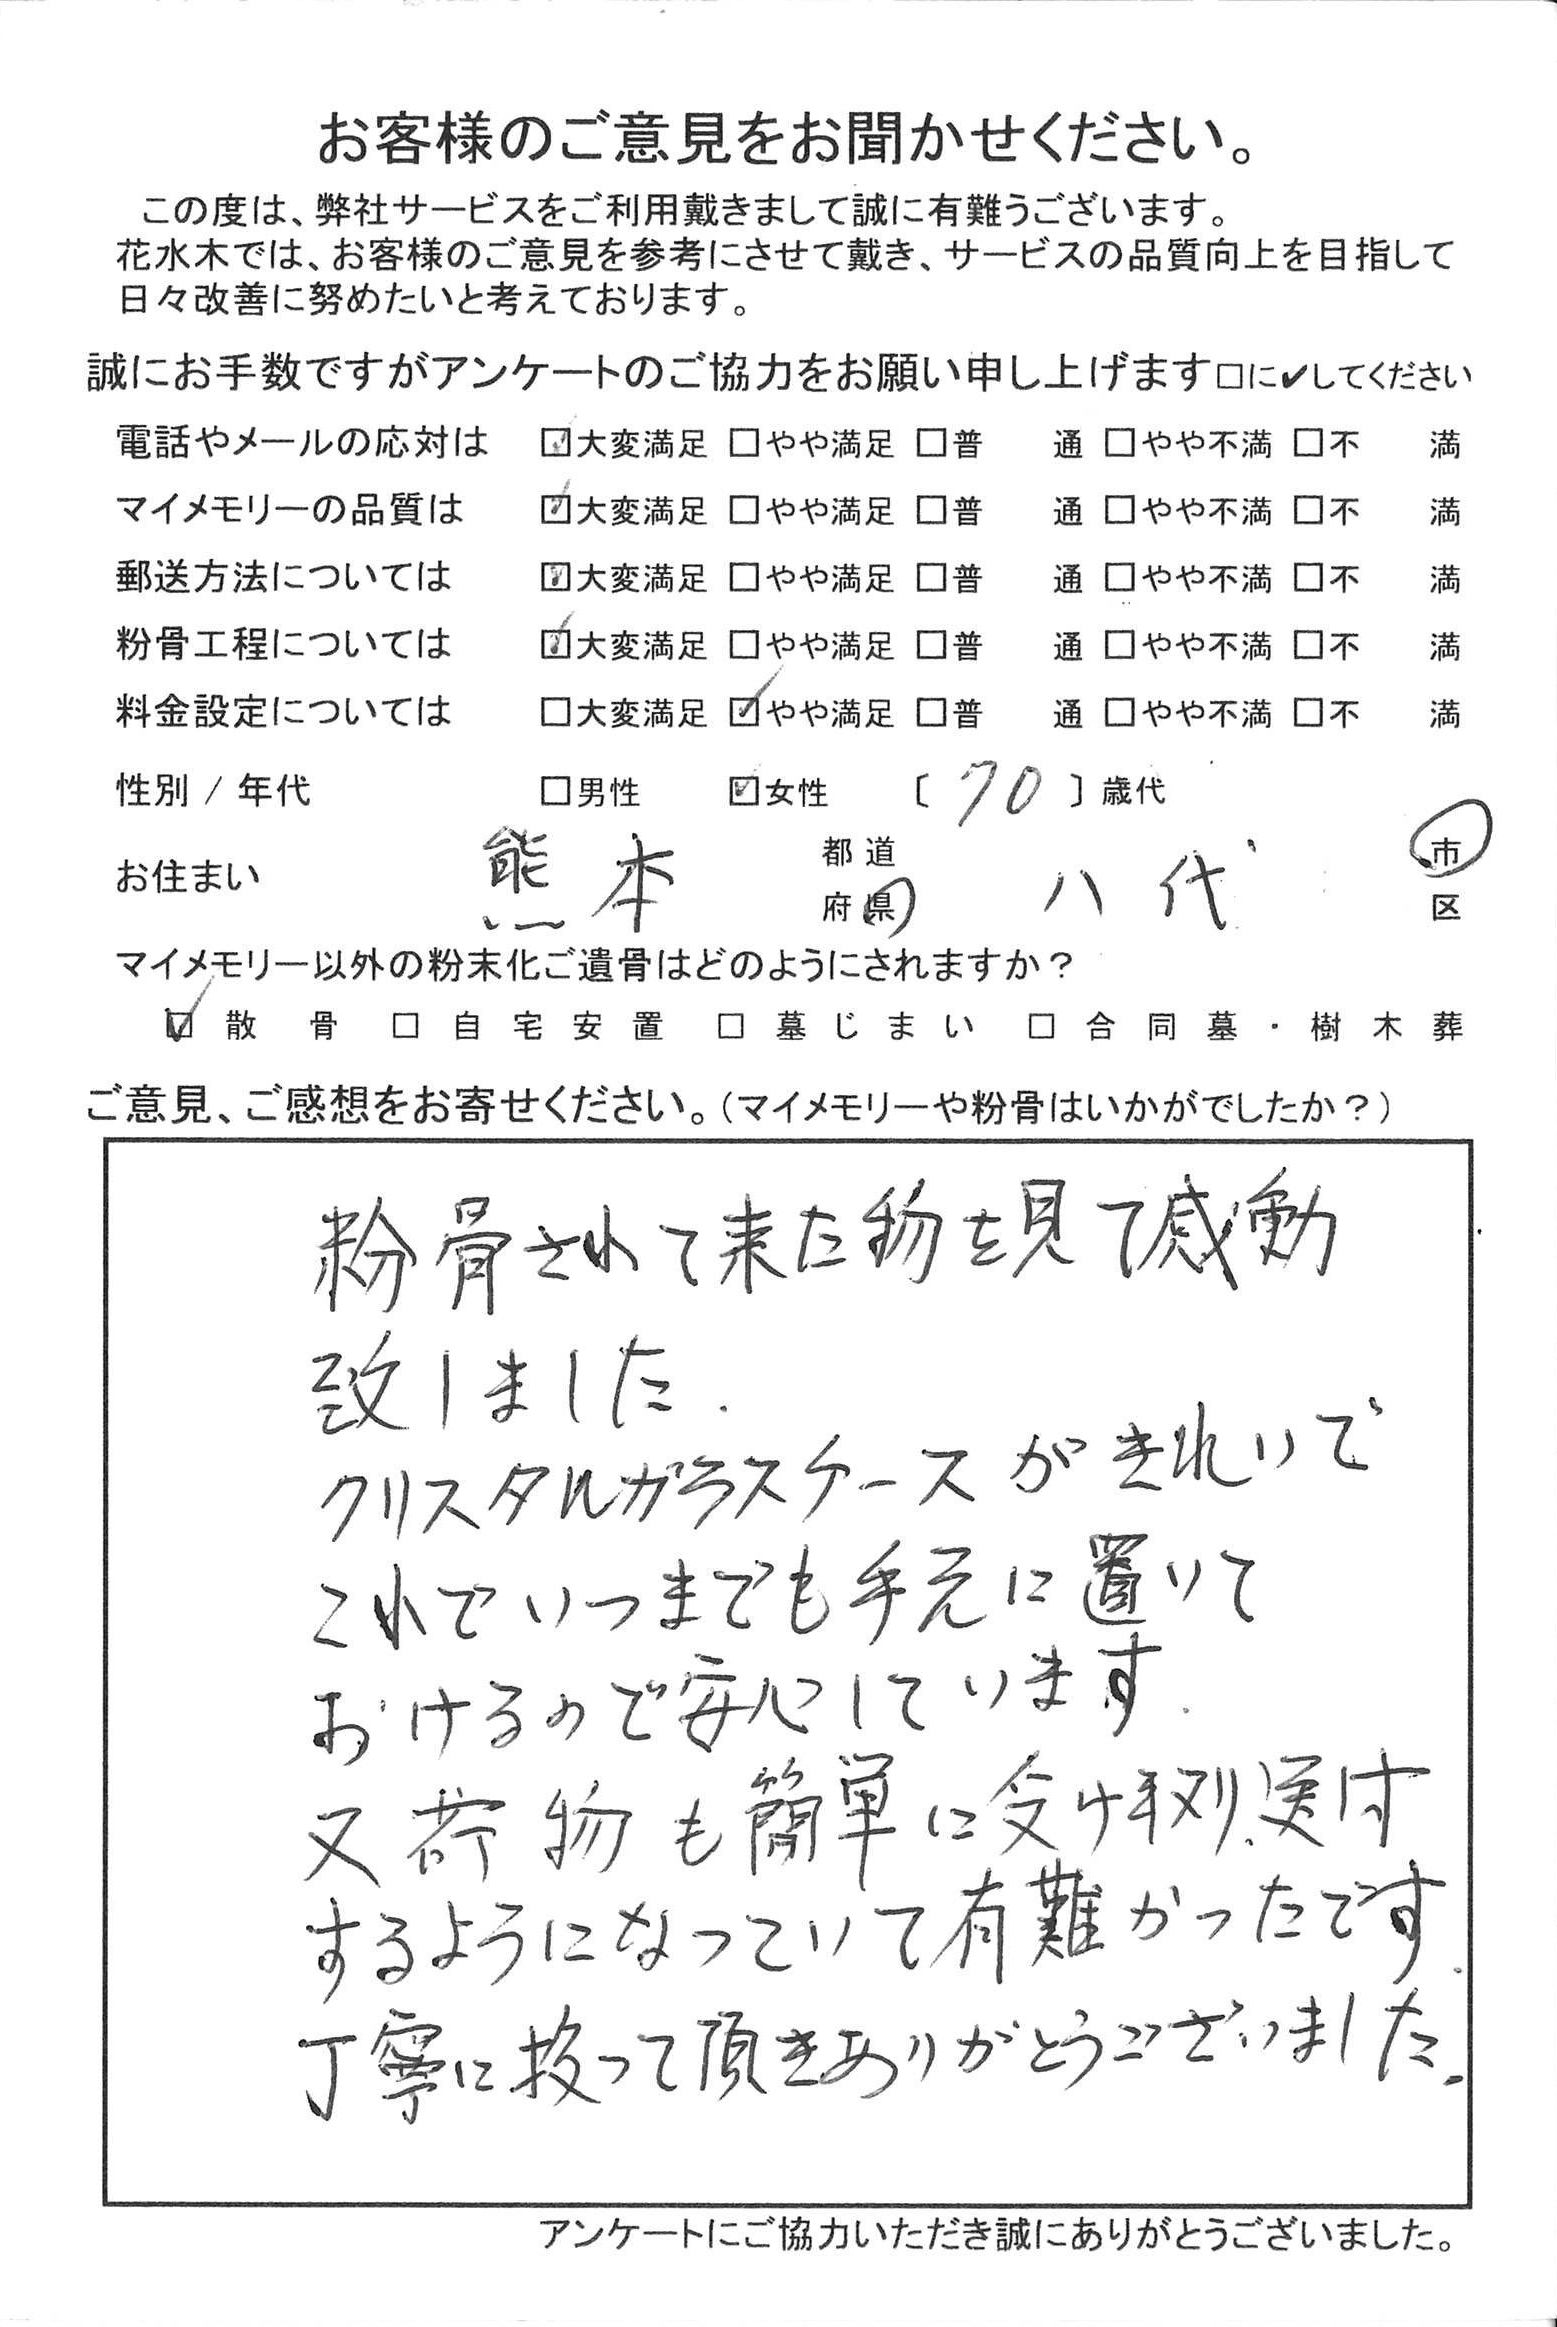 お客様のご意見をお聞かせください。
この度は、弊社サービスをご利用戴きまして誠に有難うございます。
花水木では、お客様のご意見を参考にさせて戴き、サービスの品質向上を目指して
日々改善に努めたいと考えております。
誠にお手数ですがアンケートのご協力をお願い申し上げます□に✔してください
電話やメールの応対は ☑大変満足 □やや満足 □普 通 □やや不満 □不 満
マイメモリーの品質は ☑大変満足 □やや満足 □普 通 □やや不満 □不 満
郵送方法については ☑大変満足 □やや満足 □普 通 □やや不満 □不 満
粉骨工程については ☑大変満足 □やや満足 □普 通 □やや不満 □不 満
料金設定については □大変満足 ☑やや満足 □普 通 □やや不満 □不 満
性別 / 年代 □男性 ☑女性 〔 70 〕歳代
お住まい 熊本 都道府県 八代 市区
マイメモリー以外の粉末化ご遺骨はどのようにされますか?
☑ 散骨 □ 自宅安置 □ 墓じまい □ 合同墓・樹木葬
ご意見、ご感想をお寄せください。(マイメモリーや粉骨はいかがでしたか?)
粉骨されて来た物を見て感動
致しました.
クリスタルガラスケースがきれいで
これでいつまでも手元に置いて
おけるので安心しています.
又荷物も簡単に受け取り、送付
するようになっていて有難かったです.
丁寧に扱って頂きありがとうございました.
アンケートにご協力いただき誠にありがとうございました。